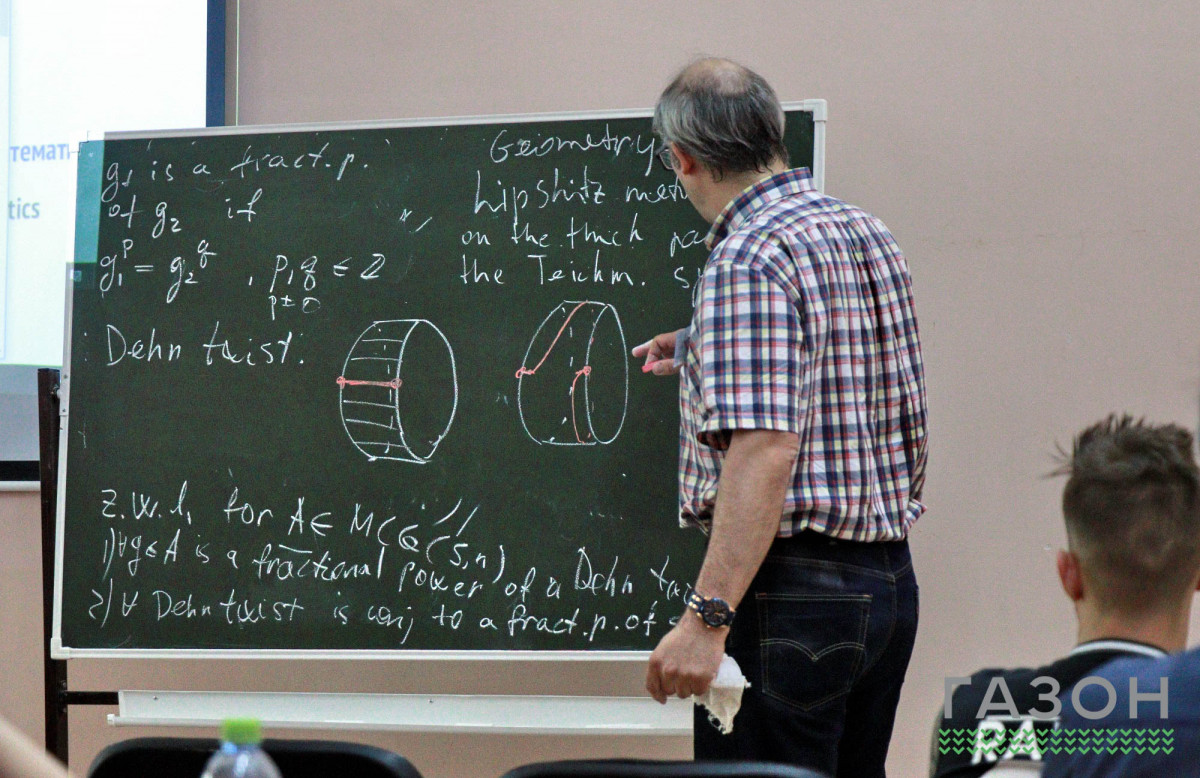 темат
tics
g₁ is a fract. p.
of g₂ if
g₁ᵖ = g₂^q , p, q ∈ Z
p ≠ 0
Dehn twist:
Geometry
Lipshitz met
on the thick pa
the Teichm. s
z.w.l. for A ∈ MCG(S,n)
1) ∀g∈A is a fractional power of a Dehn twi
2) ∀ Dehn twist is conj to a fract. p. of
RA
ГАЗОН